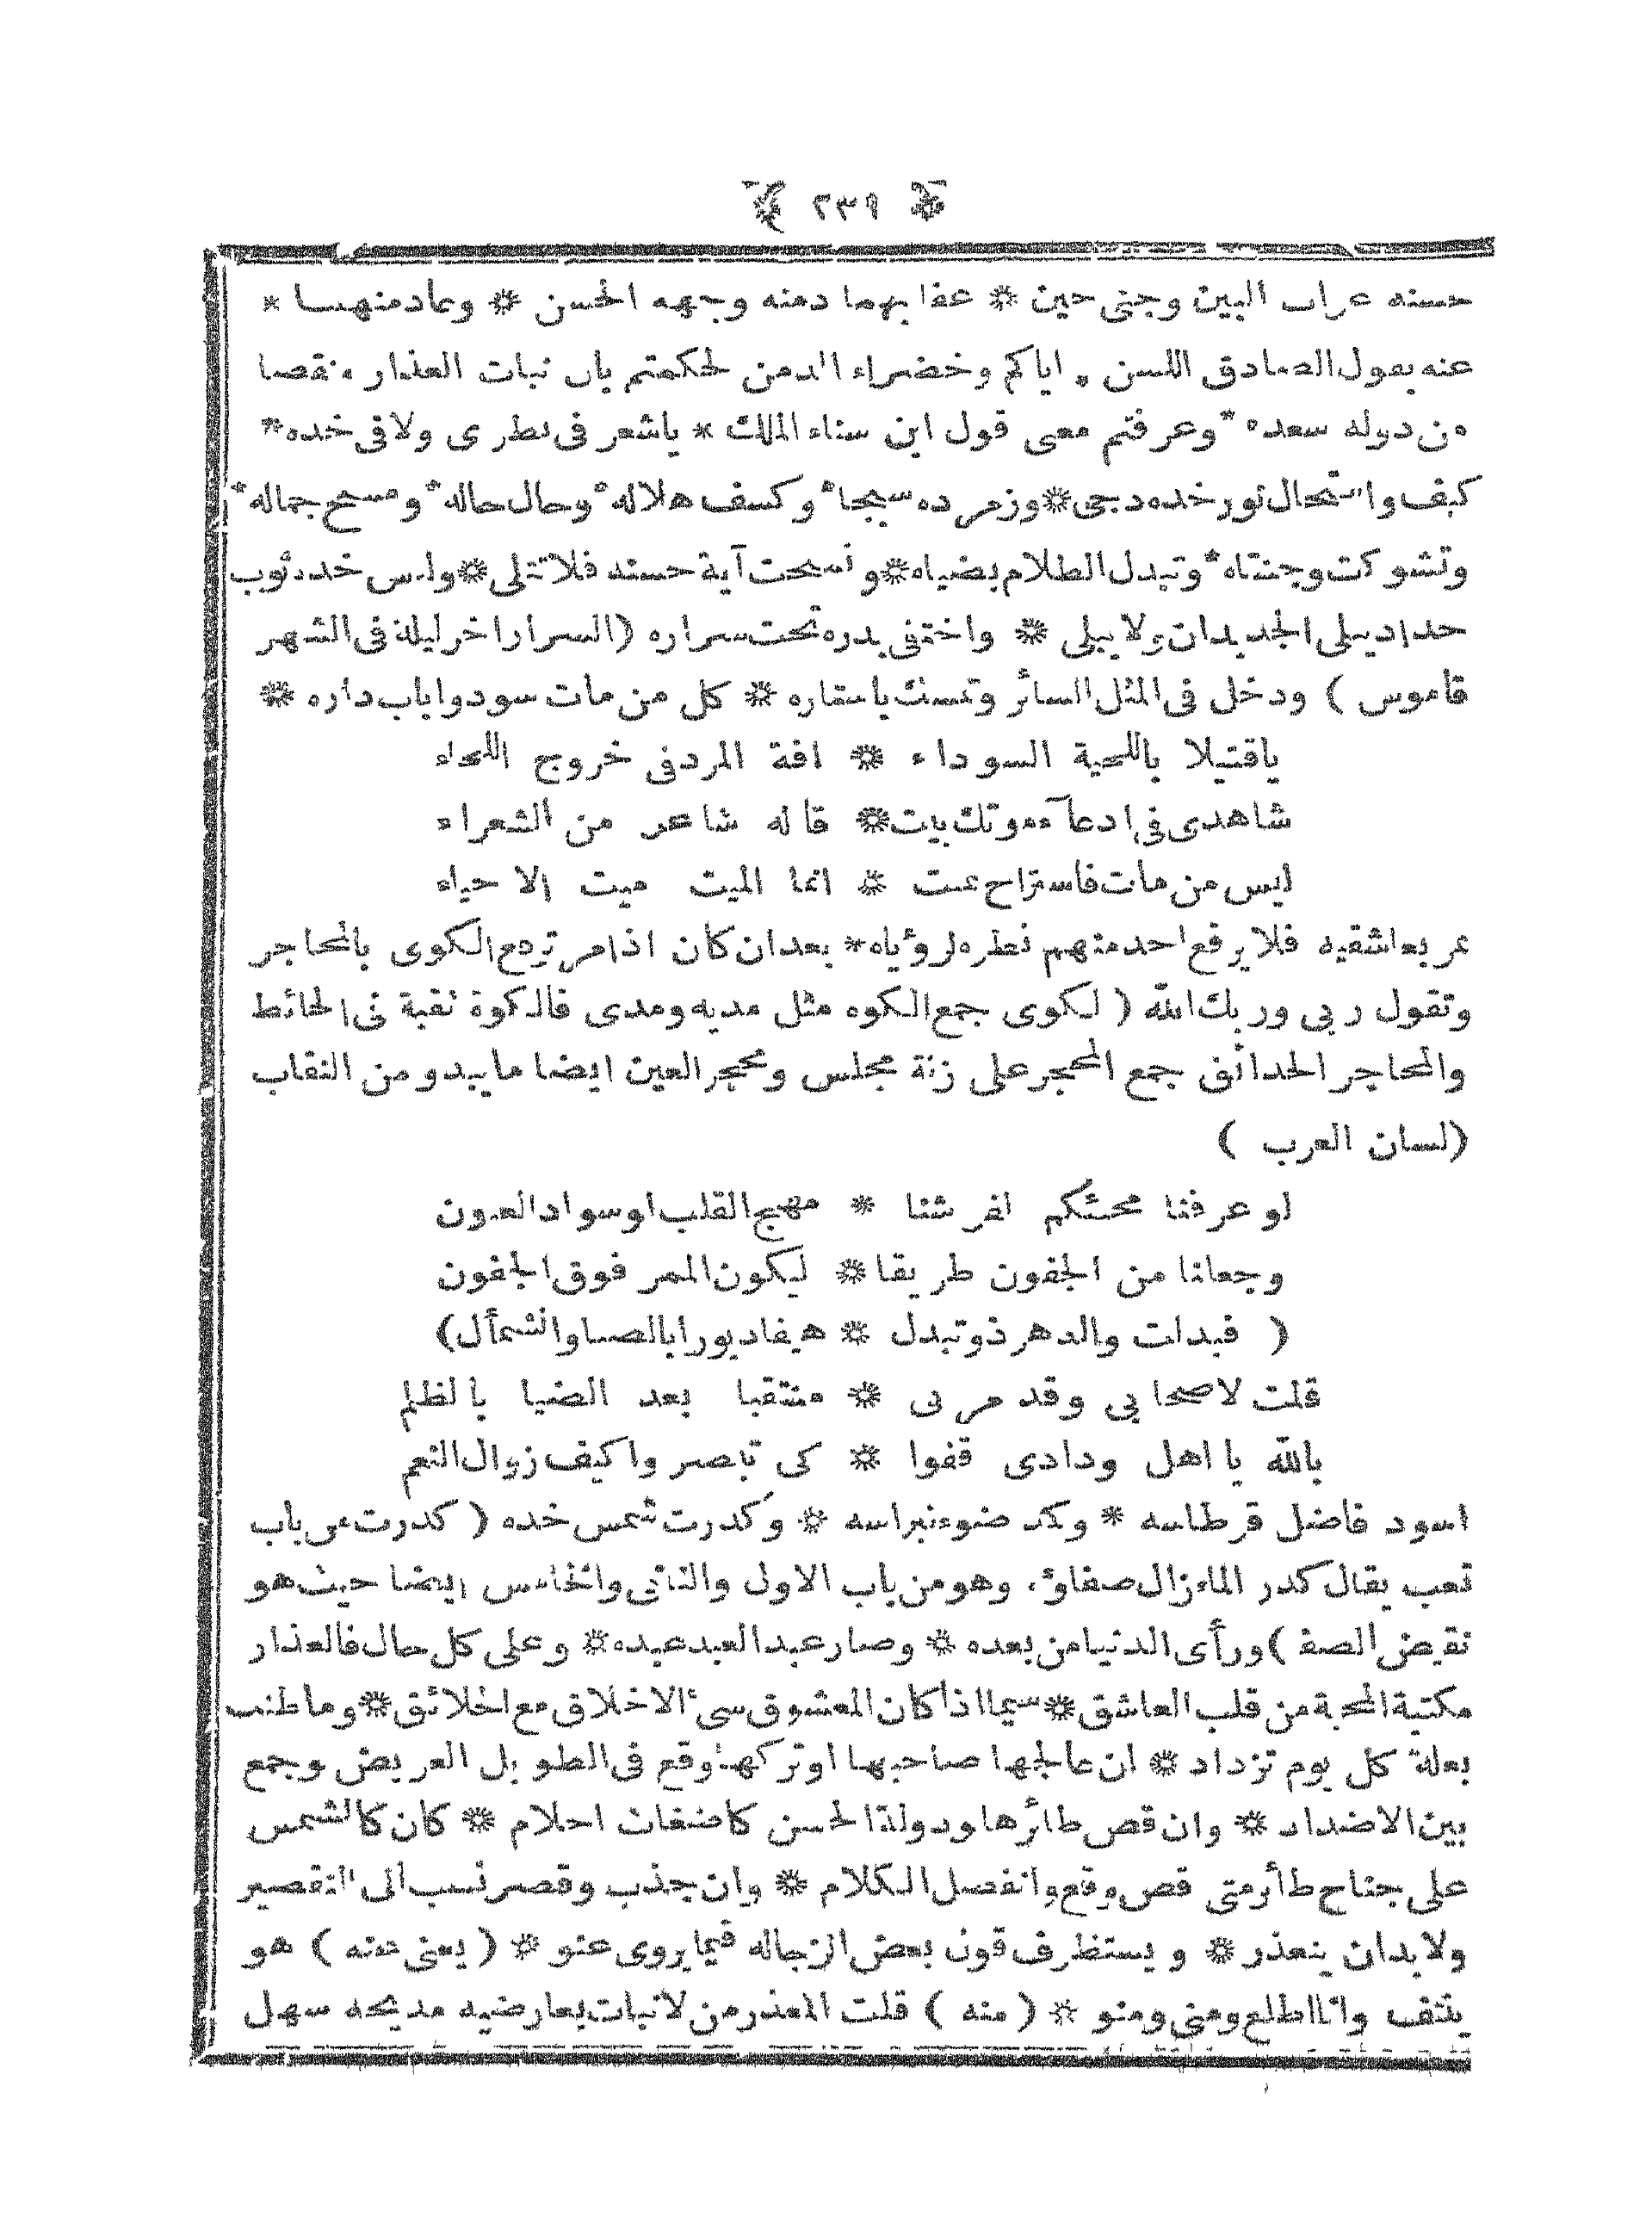 ﴿ ٢٣٩ ﴾
حسنه غراب البين وجنى حين * عفا بهما دمنه وجهه الحسن * وعاد منهما *
عنه بقول الصادق اللسن * اياكم وخضراء الدمن لحكمتم بان نبات العذار منقصا
من دوله سعده * وعرفتم معنى قول ابن سناء الملك * ياشعر فى نظرى ولا فى خده *
كيف واستحال نور خده دجى * وزمرده سبجا * وكسف هلاله * وحال حاله * ومسخ جماله *
وتشوكت وجنتاه * وتبدل الظلام بضياه * ونسخت آية حسنه فلا تتلى * ولبس خده ثوب
حداد يبلى الجديدان ولا يبلى * واختفى بدره تحت سراره (السرار اخر ليلة فى الشهر
قاموس ) ودخل فى المثل السائر وتمسك باستاره * كل من مات سودوا باب داره *
ياقتيلا باللحية السوداء * افة المرد فى خروج اللحاء
شاهدى فى ادعآء موتك بيت * قاله شاعر من الشعراء
ليس من مات فاستراح بميت * انما الميت ميت الاحياء
يمر بعاشقيه فلا يرفع احد منهم نظره لرؤياه * بعد ان كان اذا مر ترمع الكوى بالمحاجر
وتقول ربى وربك الله ( لكوى جمع الكوه مثل مديه ومدى فالكوة نقبة فى الحائط
والمحاجر الحدائق جمع المحجر على زنة مجلس ومحجر العين ايضا مايبدو من النقاب
(لسان العرب )
لو عرفنا مجيئكم لفرشنا * مهج القلب او سواد العيون
وجعلنا من الجفون طريقا * ليكون الممر فوق الجفون
( فبدلت والدهر ذو تبدل * هيفا دبورا بالصبا والشمأل)
قلت لاصحابى وقد مر بى * منتقبا بعد الضيا بالظلم
بالله يا اهل ودادى قفوا * كى تبصروا كيف زوال النعم
اسود فاضل قرطاسه * وكد ضوء نبراسه * وكدرت شمس خده ( كدرت من باب
تعب يقال كدر الماء زال صفاؤه وهو من باب الاول والثانى والخامس ايضا حيث هو
نقيض الصف ) ورأى الدنيا من بعده * وصار عبد العبد عبده * وعلى كل حال فالعذار
مكتبة المحبة من قلب العاشق * سيما اذا كان المعشوق سئ الاخلاق مع الخلائق * وما ظنك
بعلة كل يوم تزداد * ان عالجها صاحبها او تركها وقع فى الطويل العريض وجمع
بين الاضداد * وان قص طائرها ودولة الحسن كاضغاث احلام * كان كالشمس
على جناح طائر متى قص وقع وانفصل الكلام * وان جذب وقصر نسب الى التقصير
ولابد ان يتعذر * ويستظرف قول بعض الزجاله فيما يروى عنو * ( يعنى عنه ) هو
ينتف وانا اطلع ومنى ومنو * ( منه ) قلت المعذر من لانبات بعارضيه مديحه سهل